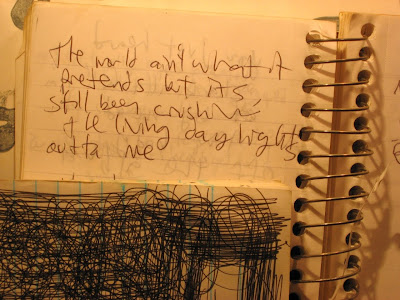 The world ain't what it
pretends but it's
still been crushin'
the living day lights
outta me